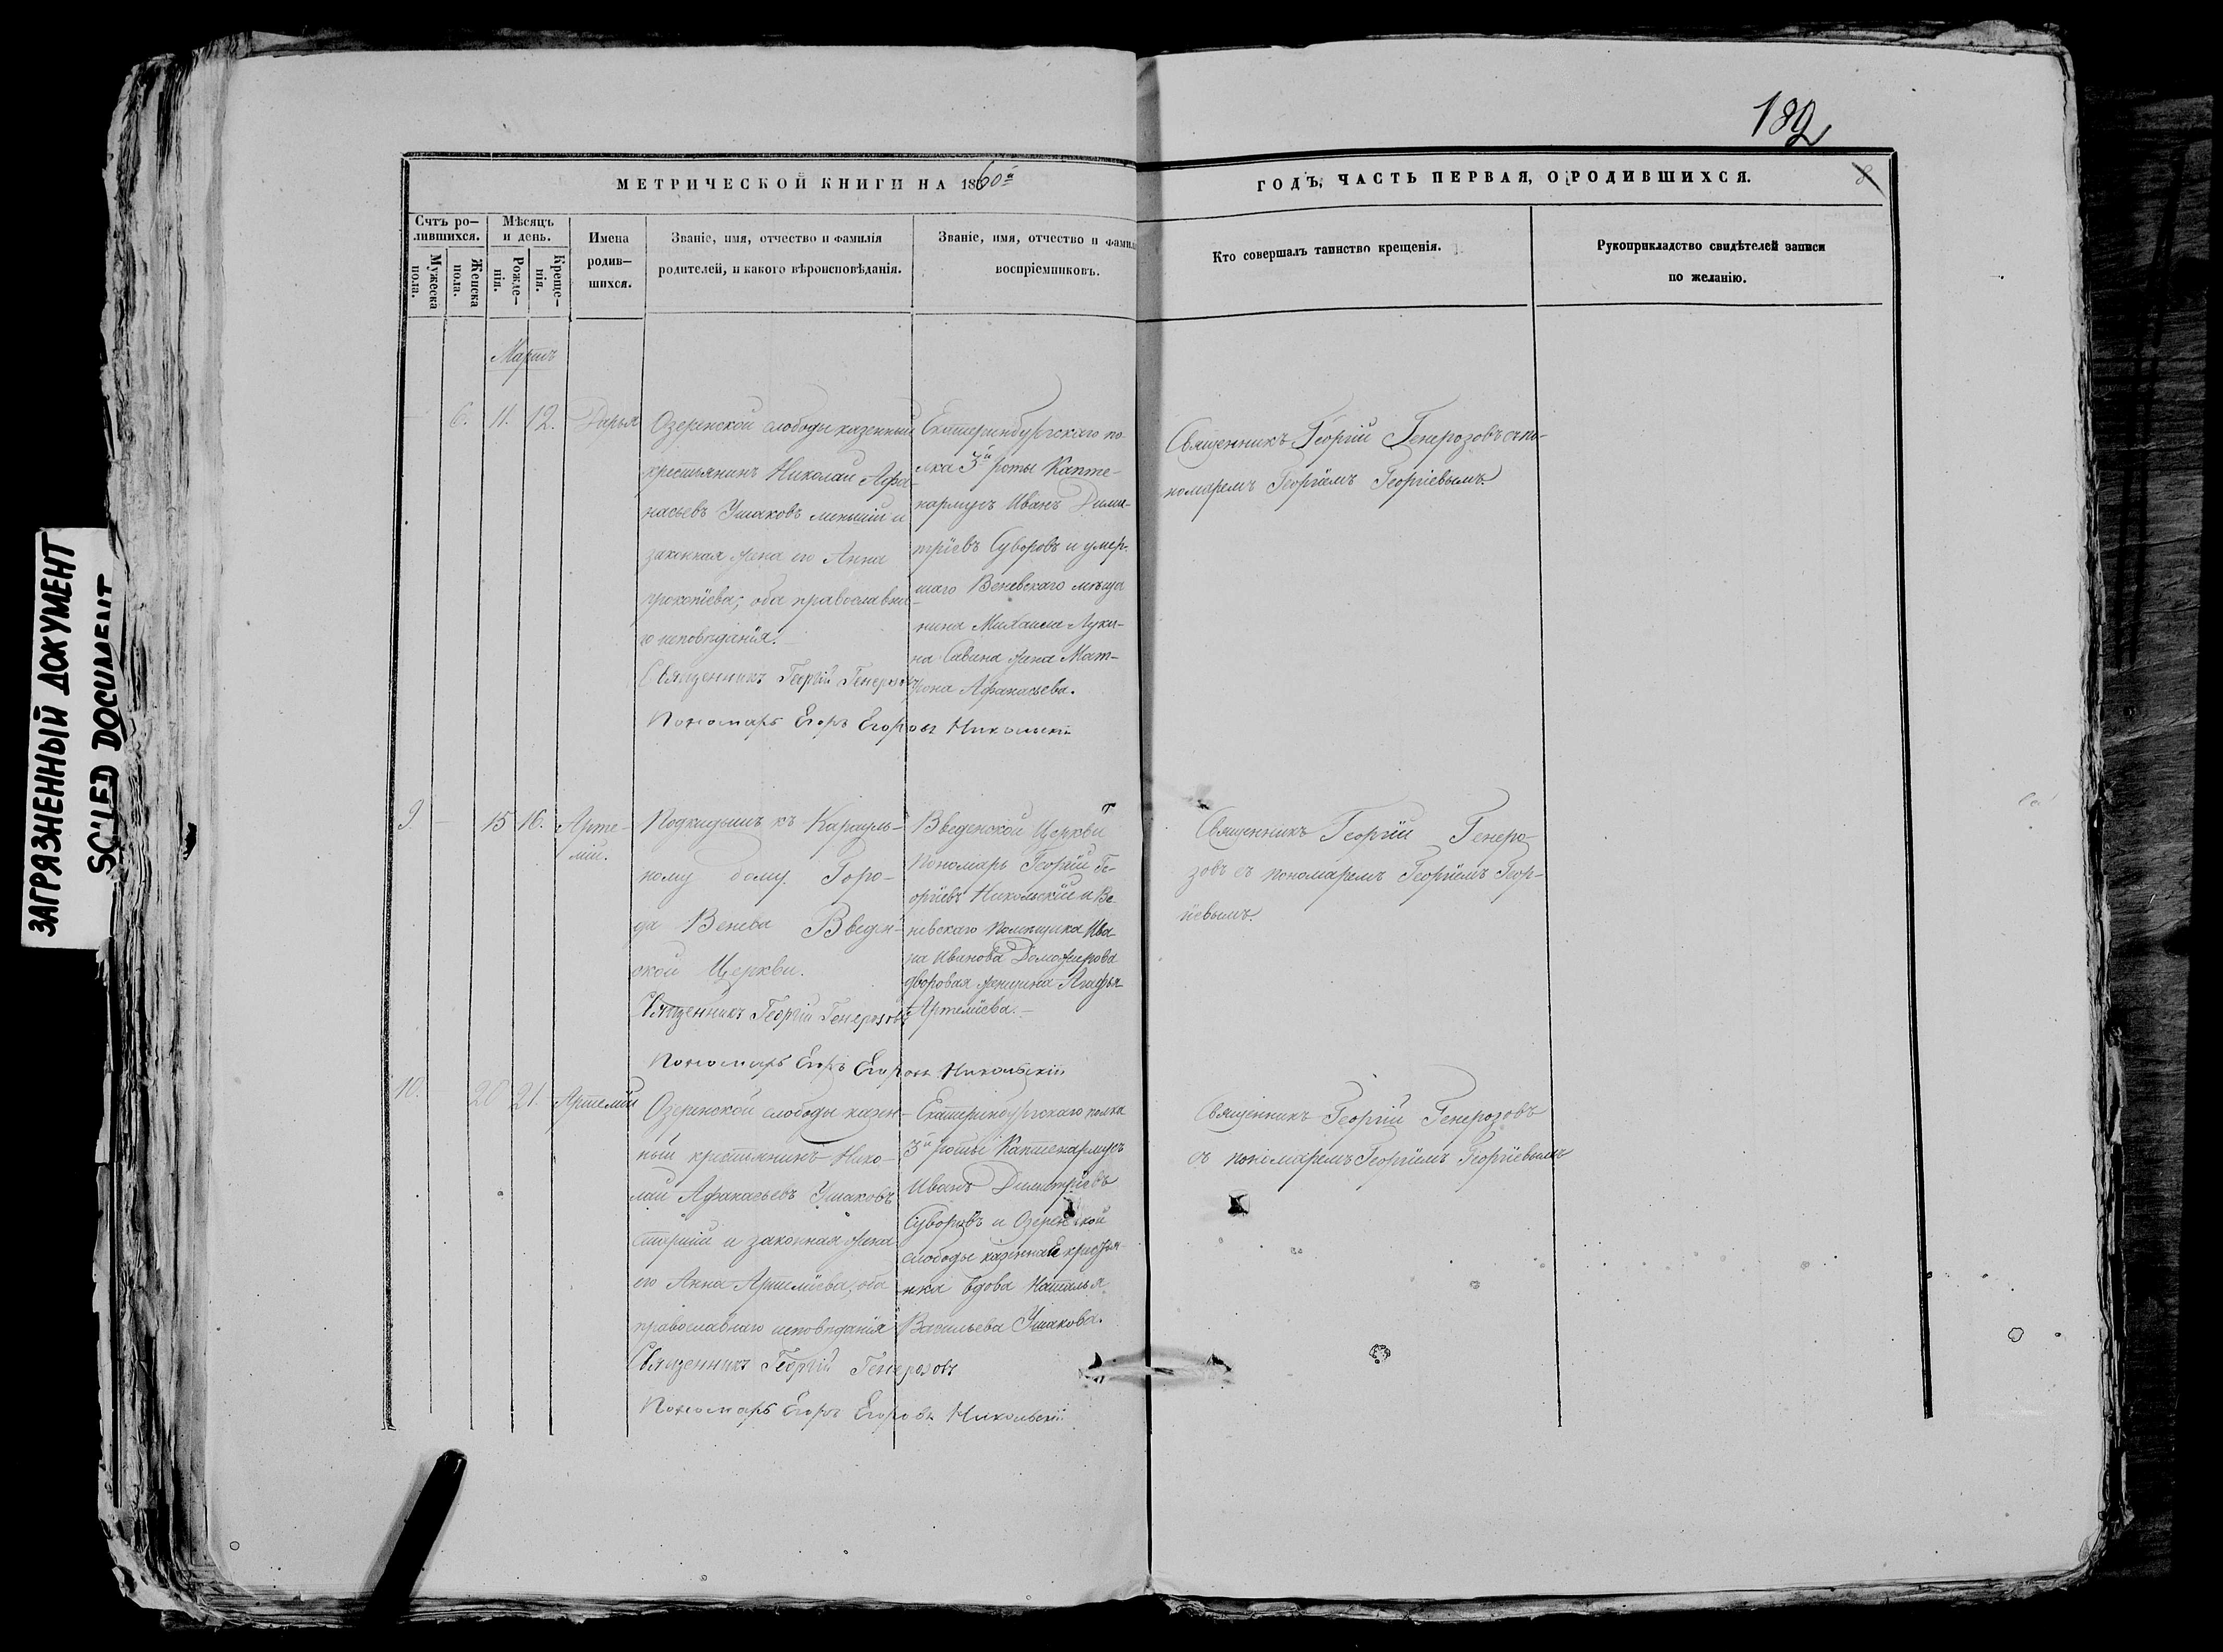 182
МЕТРИЧЕСКОЙ КНИГИ НА 1860й
ГОДЪ, ЧАСТЬ ПЕРВАЯ, О РОДИВШИХСЯ.
8
Счтъ ро-
дившихся.
Мужеска
пола.
Женска
пола.
Мѣсяцъ
и день.
Рожде-
нія.
Креще-
нія.
Имена
родив-
шихся.
Званіе, имя, отчество и фамилія
родителей, и какого вѣроисповѣданія.
Званіе, имя, отчество и фамил
воспріемниковъ.
Кто совершалъ таинство крещенія.
Рукоприкладство свидѣтелей записи
по желанію.
Мартъ
6. 11. 12. Дарья
Озеренской слободы казенный
крестьянинъ Николай Афа-
насьевъ Ушаковъ меньшій и
законная жена его Анна
Прокопіева; оба православна-
го исповѣданія.
Священникъ Георгій Генерозовъ
Пономарь Егоръ Егоровъ Никольскій
Екатеринбургскаго по-
лка 3й роты Капте-
нармусъ Иванъ Дими-
тріевъ Суворовъ и умер-
шаго Веневскаго мѣща
нина Михаила Луки-
на Савина жена Мат-
рона Афанасьева.
Священникъ Георгій Генерозовъ съ по-
номаремъ Георгіемъ Георгіевымъ.
9 - 15 16. Арте-
мій.
Подкидышъ къ Карауль-
ному дому. Горо-
да Венева Введен-
ской Церкви.
Священникъ Георгій Генерозовъ
Пономарь Егоръ Егоровъ Никольскій
Введенской Церкви
Пономарь Георгій Ге-
оргіевъ Никольскій и Ве-
невскаго помѣщика Ива-
на Иванова Доможирова
дворовая женщина Агафья
Артеміева.
Священникъ Георгій Генеро-
зовъ съ пономаремъ Георгіемъ Геор-
гіевымъ.
10. 20 21. Артемій
Озеренской слободы казен-
ный крестьянинъ Нико-
лай Афанасьевъ Ушаковъ
старшій и законная жена
его Анна Артеміева, оба
православнаго исповѣданія
Священникъ Георгій Генерозовъ
Пономарь Егоръ Егоровъ Никольскій
Екатеринбургскаго полка
3й роты Каптенармусъ
Иванъ Димитріевъ
Суворовъ и Озеренской
слободы казенная крестьян-
нка вдова Наталья
Васильева Ушакова.
Священникъ Георгій Генерозовъ
съ пономаремъ Георгіемъ Георгіевымъ
ЗАГРЯЗНЕННЫЙ ДОКУМЕНТ
SOILED DOCUMENT